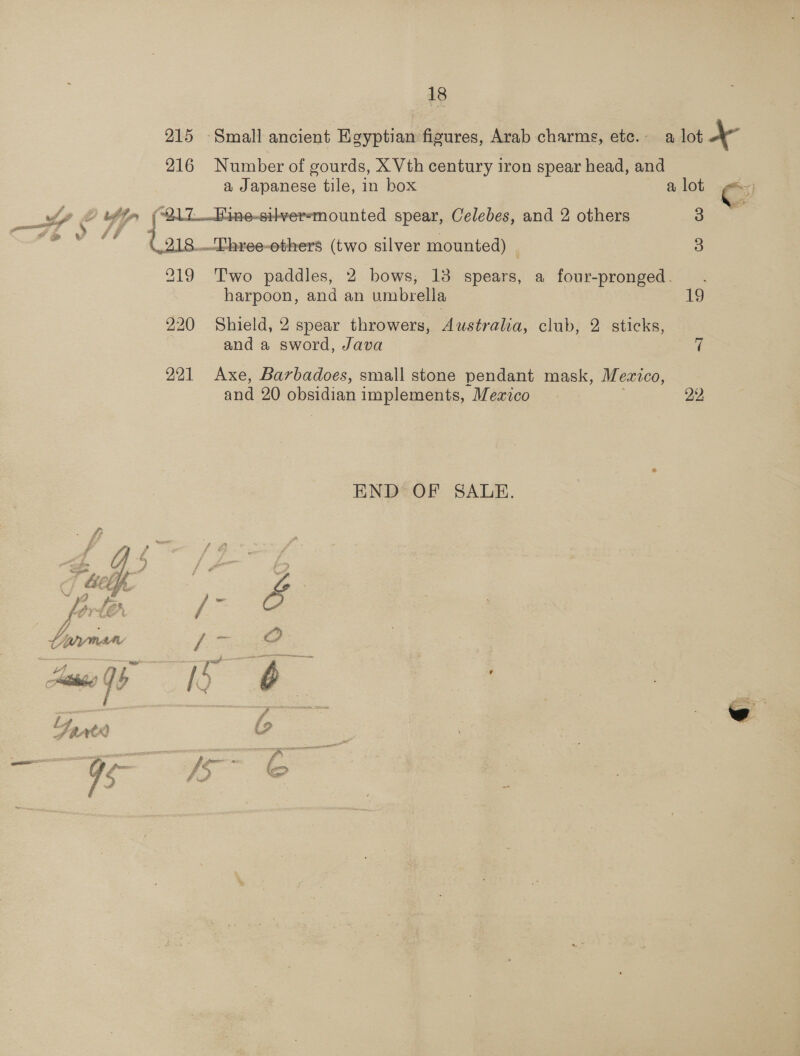 18
215 Small ancient Egyptian figures, Arab charms, etc. a lot
216 Number of gourds, XVth century iron spear head, and
a Japanese tile, in box a lot
217 Fine silver-mounted spear, Celebes, and 2 others 3
218 Three others (two silver mounted) 3
219 Two paddles, 2 bows, 13 spears, a four-pronged
harpoon, and an umbrella 19
220 Shield, 2 spear throwers, Australia, club, 2 sticks,
and a sword, Java 7
221 Axe, Barbadoes, small stone pendant mask, Mexico,
and 20 obsidian implements, Mexico 22
END OF SALE.
porter 1 - 6
Carman 1 - 0
95 15 6
6
95 15 - 6